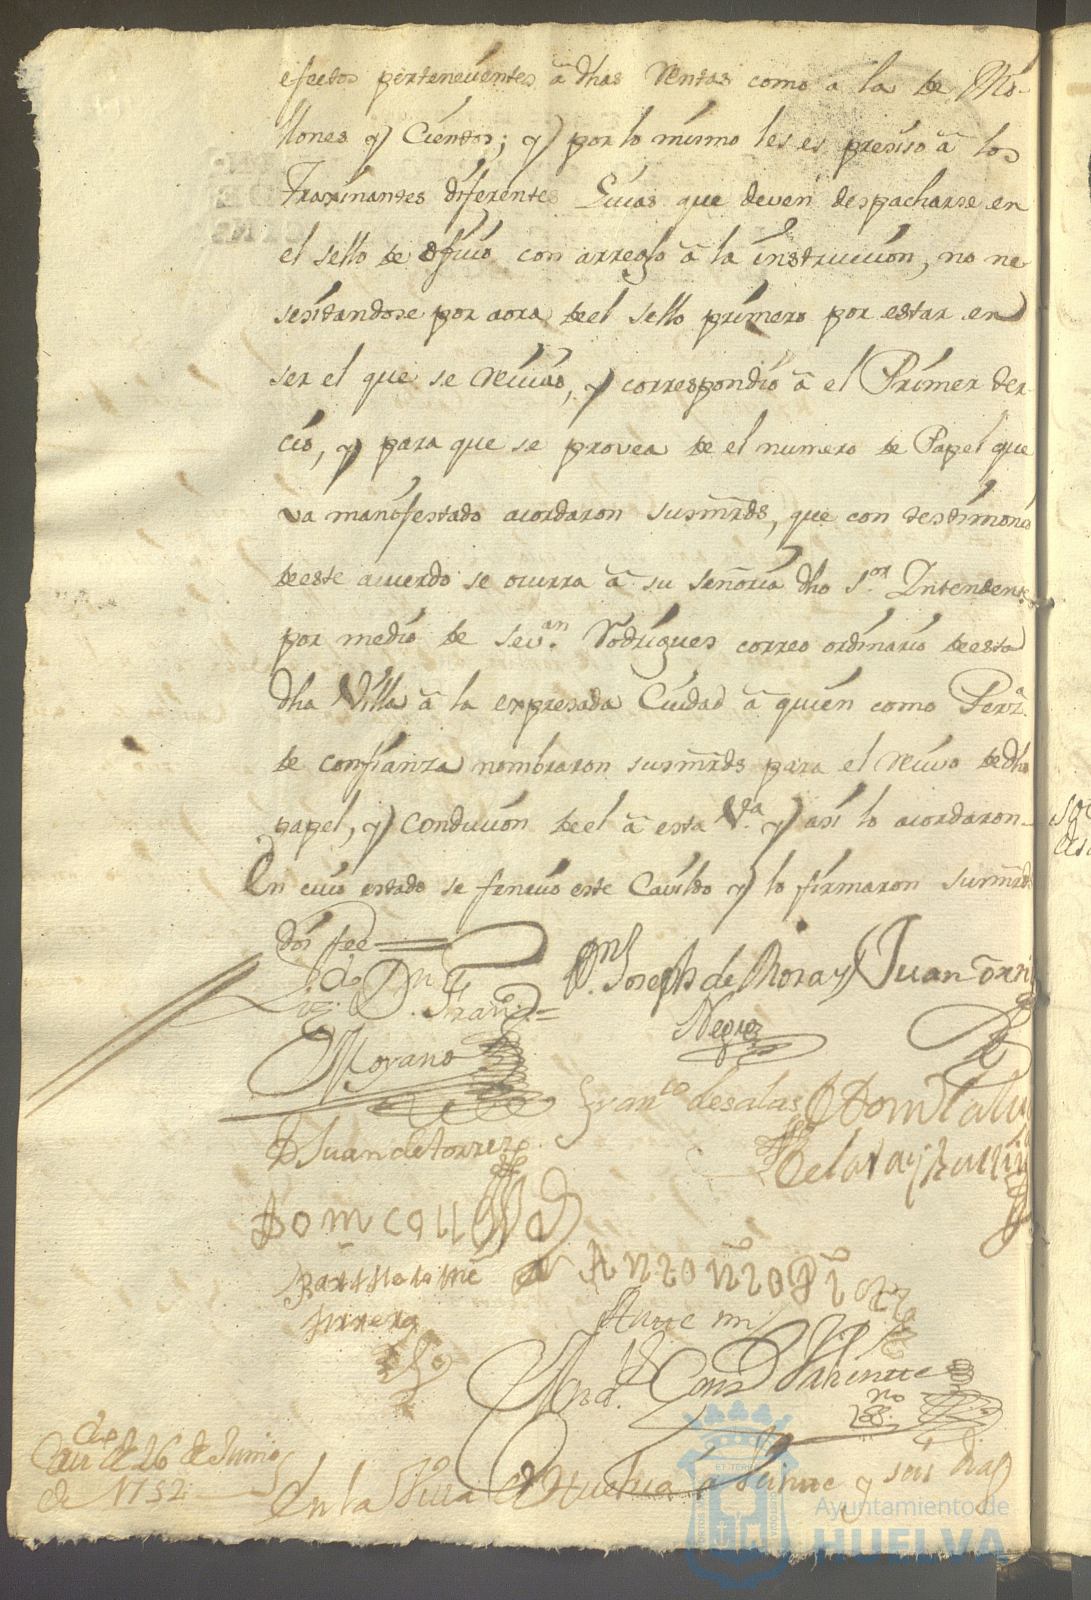 efectos pertenecientes â dhas Rentas como â la de Mi-
llones y Cientos; y por lo mismo les es presiso â los
Traxinantes diferentes Guias que deven despacharse en
el sello de oficio con arreglo â la instruccion, no ne
sesitandose por aora de el sello primero por estar en
ser el que se recivio, y correspondio â el Primer ter
cio, y para que se provea de el numero de Papel que
va manifestado acordaron susmrds, que con testimonio
de este acuerdo se ocurra â su señoria dho s.or Intendente
por medio de sev.an Rodrigues correo ordinario de esta
dha Villa â la expresada Ciudad â quien como Perz.
de confianza nombraron susmrds para el recivo de dho
papel, y conducion de el â esta V.a y asi lo acordaron
En cuio estado se fenecio este Cavildo y lo firmaron susmrds
doi fee
Liz.do Dn. Fran.co
Morano
Dn. Joseph de Mora y
Negro
Juan
Fran.co de salas
D Juan de torres
Bartholome
Antonio
Ante mi
Cav.do de 26 de Junio
de 1752
En la Villa de Huelva â veinte y seis dias
Ayuntamiento de
HUELVA